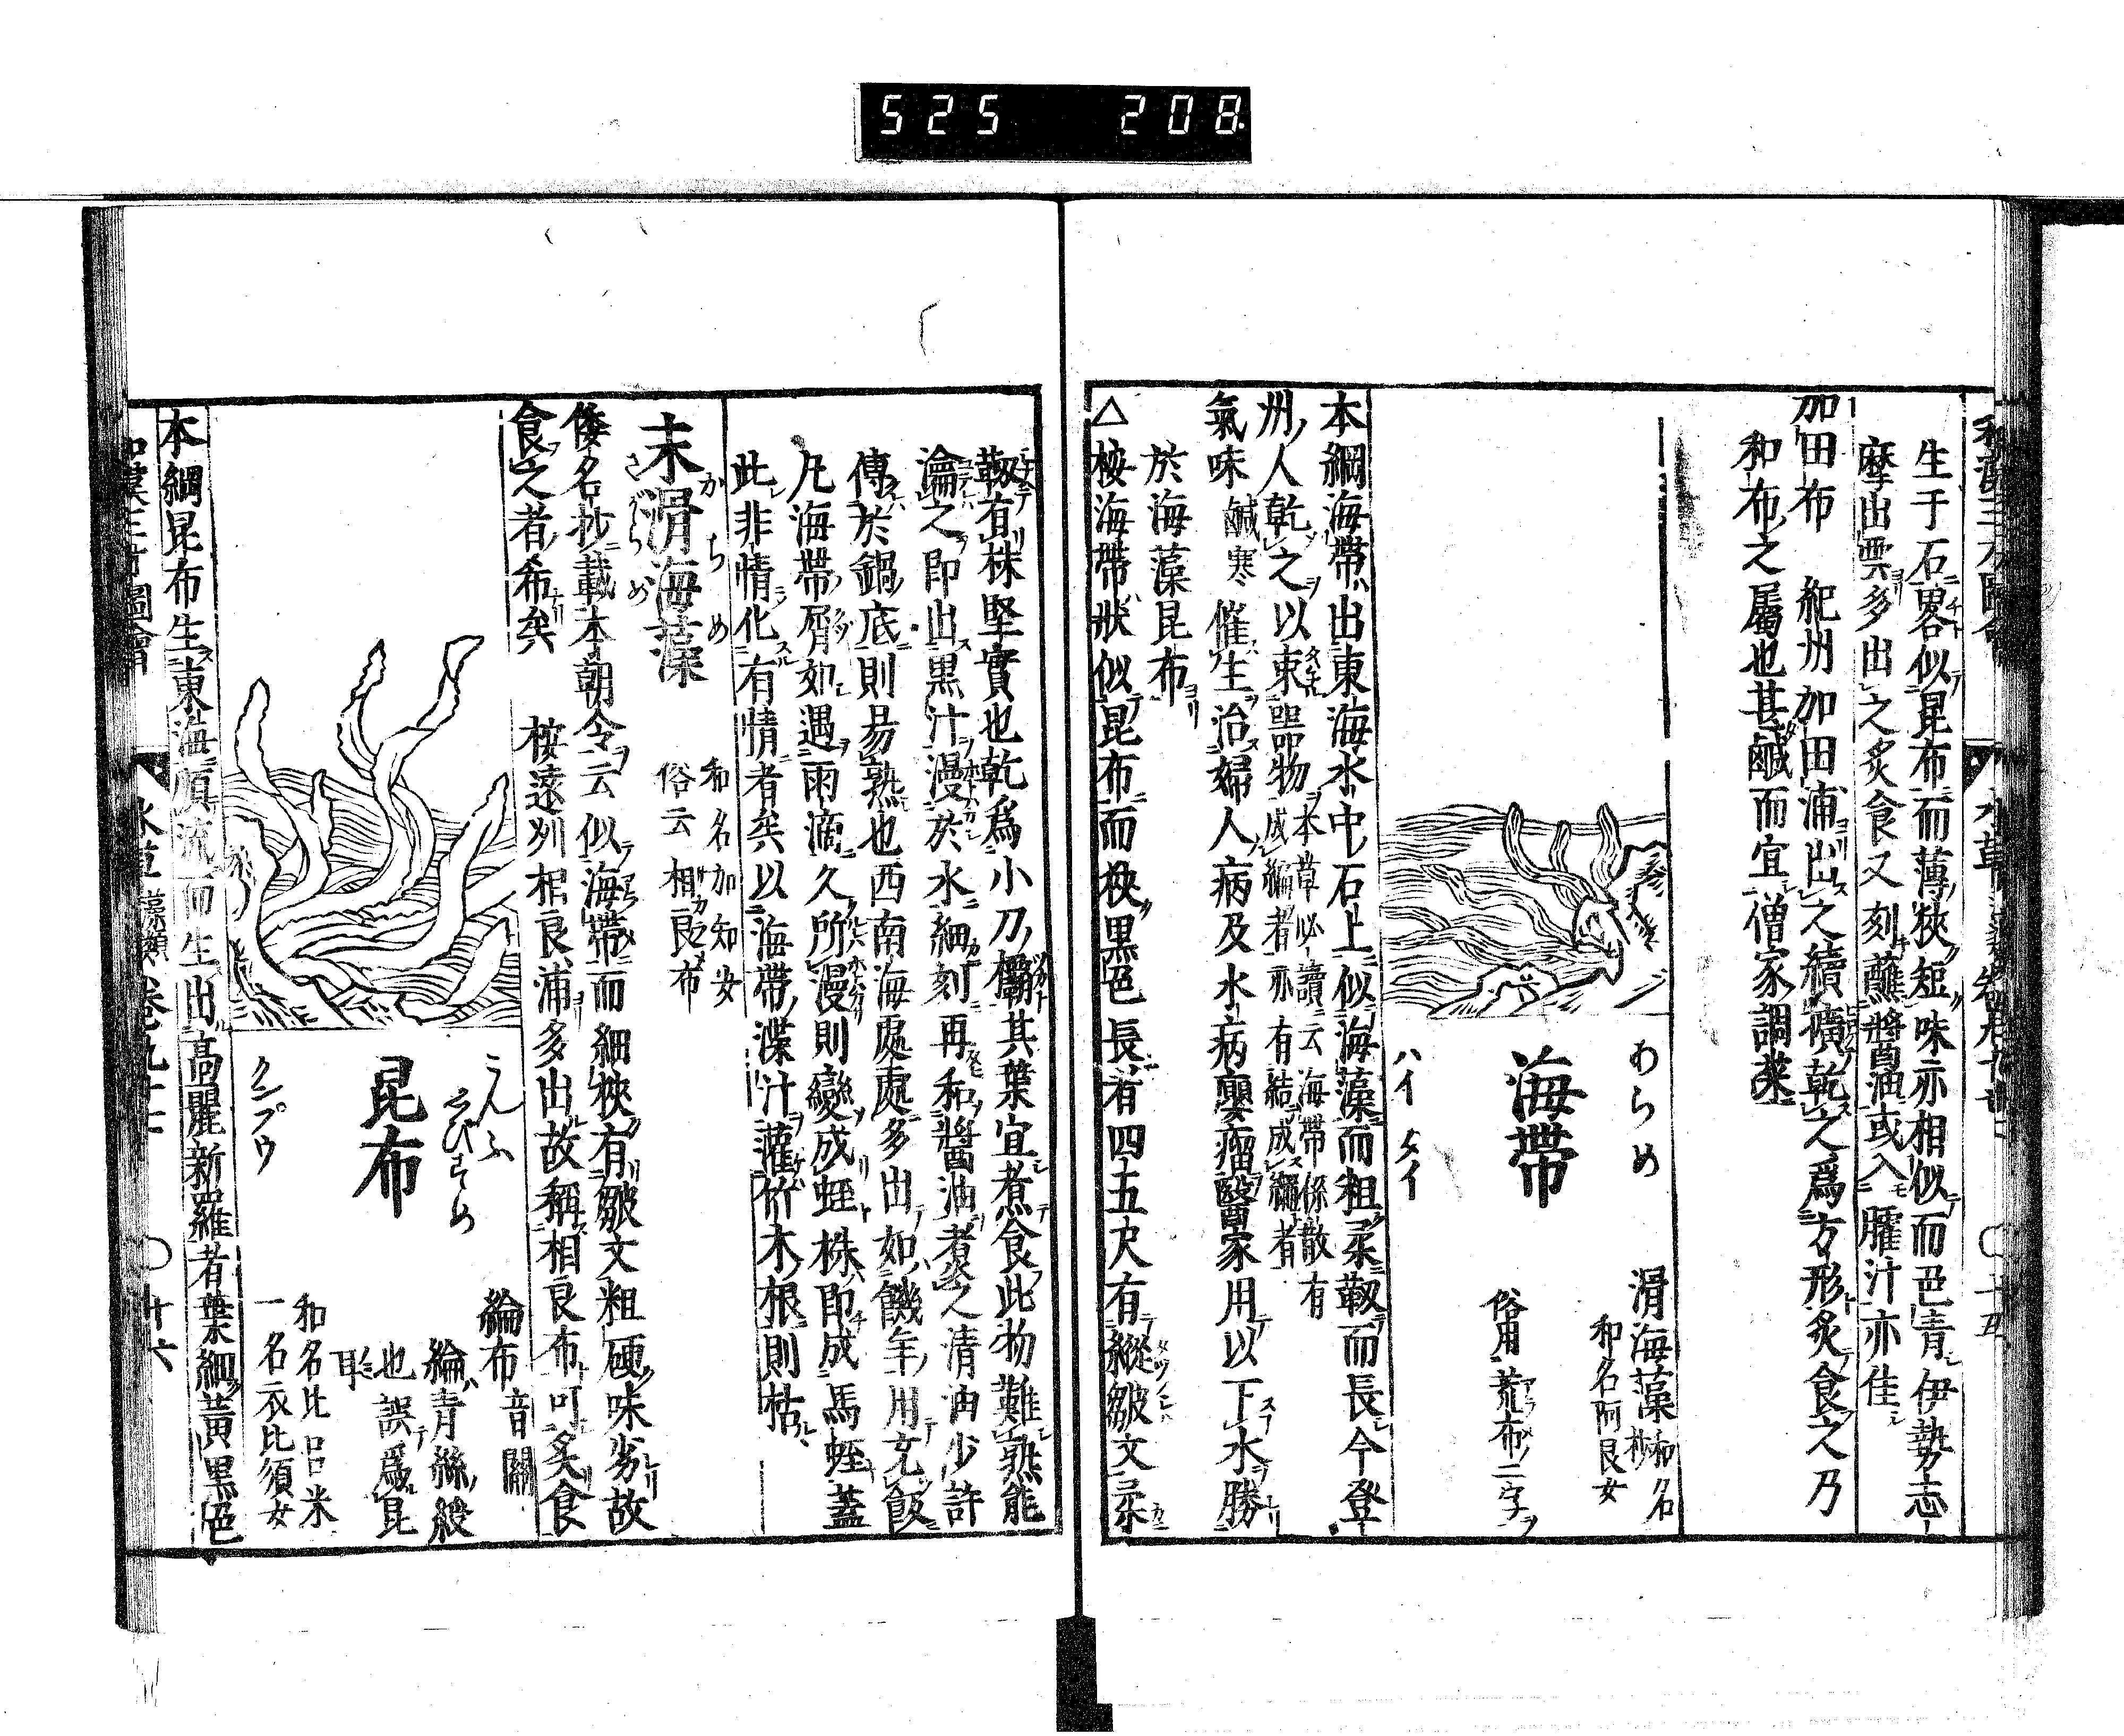 525 208
生于石畧似昆布而薄狹短味亦相似而色青伊勢志
摩出雲多出之炙食又刻蘸醬油或入臛汁亦佳
加田布 紀州加田浦出之續礦乾之爲方形炙食之乃
和布之屬也甚鹹而宜僧家調菜
海帶
あらめ
ハイ タイ
滑海藻 和名抄
和名阿良女
俗用荒布二字
本綱海帶出東海水中石上似海藻而粗柔韌而長今登
州人乾之以束噐物 本草必讀云海帶係散有
成編者亦有結成繩者
氣味 鹹寒 催生治婦人病及水病癭瘤醫家用以下水勝
於海藻昆布
△按海帶狀似昆布而狹黒色長者四五尺有縱皺文柔
韌有株堅實也乾爲小刀欛其葉宜煮食此物難熟能
瀹之即出黒汁漫於水細刻再和醬油煮之清油少許
傳於鍋底則昜熟也西南海處處多出如饑年用充飯
凡海帶屑如遇雨滴久所漫則變成蛭株即成馬蛭蓋
此非情化有情者矣以海帶渫汁灌竹木根則枯
末滑海藻
かちめ
さがらめ
和名加知女
俗云相良布
倭名抄載本朝令云似海帶而細狹有皺文粗硬味劣故
食之者希矣 按遠州相良浦多出故稱相良布可炙食
昆布
こんふ
ゑびすめ
クンプウ
綸布 音關
綸青絲綬
也誤爲昆
耳
和名比呂米
一名衣比須女
本綱昆布生東海順流而生出高麗新羅者葉細黃黒色
和漢三才圖會 水草 藻類 卷九十七 〇十六